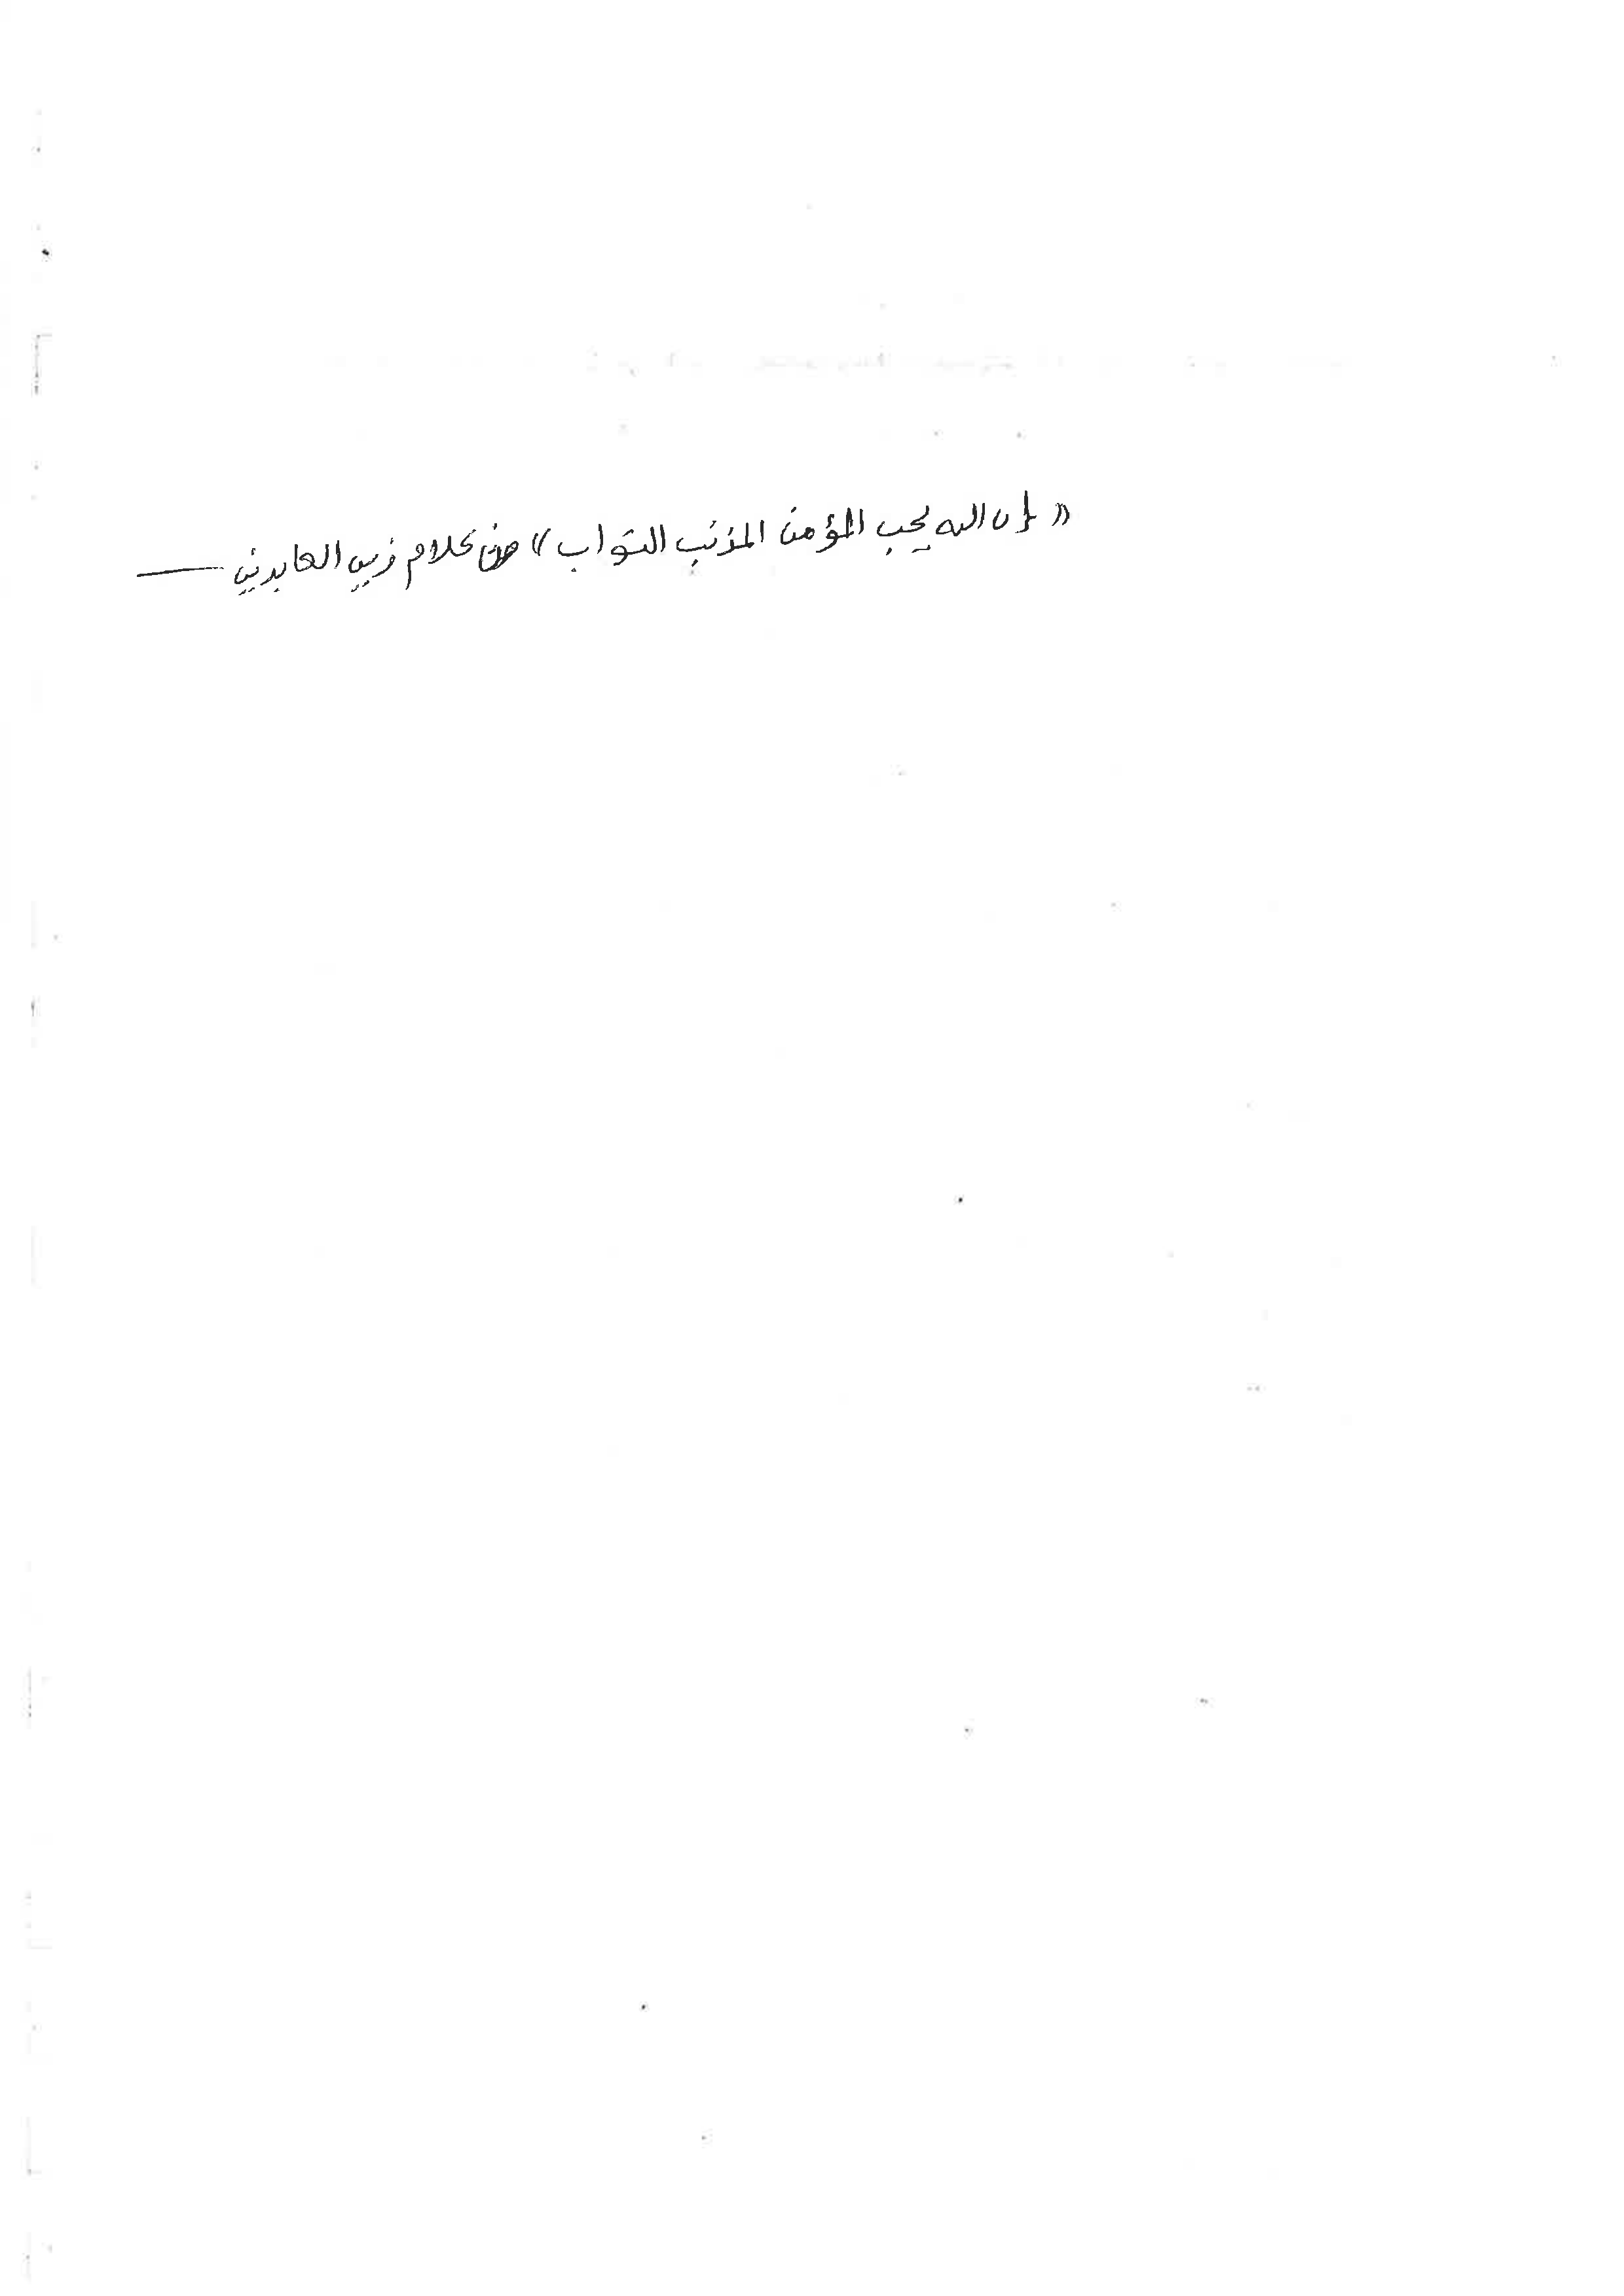 «إن الله يحب المؤمن المذنب التواب» من كلام زين العابدين